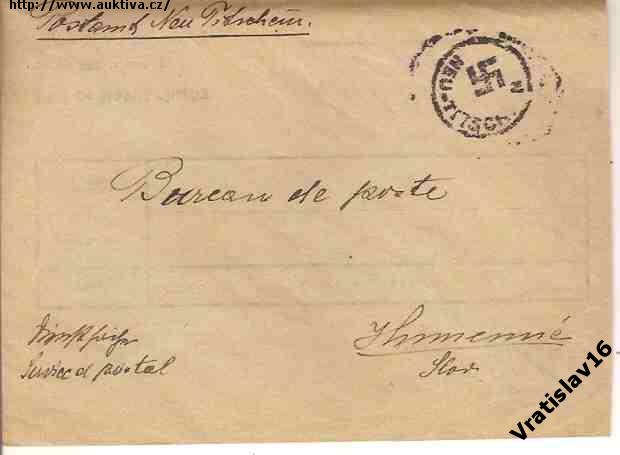 http://www.auktiva.cz/
Postamt Neu Titschein.
NEU-TITSCH
Bureau de poste
Service d postal
Humenné
Slov
Vratislav16